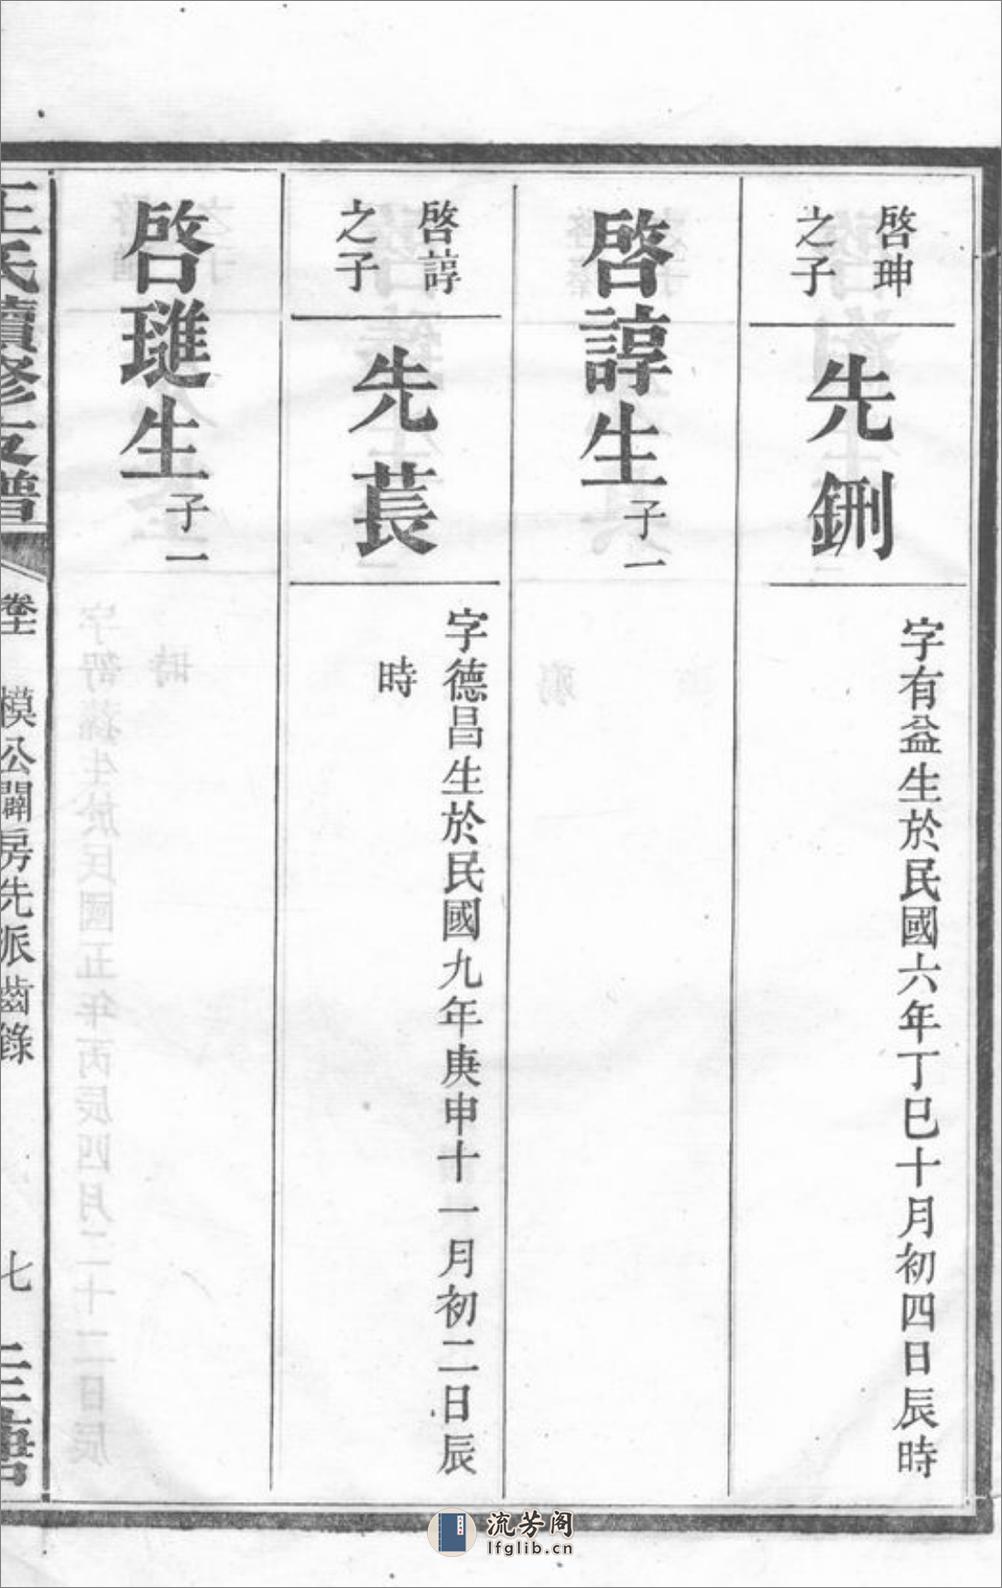 啓珅
之子
先鉶
字有益生於民國六年丁巳十月初四日辰時
啓諄生子一
啓諄
之子
先萇
字德昌生於民國九年庚申十一月初二日辰
時
啓璡生子一
王氏續修支譜 模公關房先派齒錄 七
流芳阁
lfglib.cn